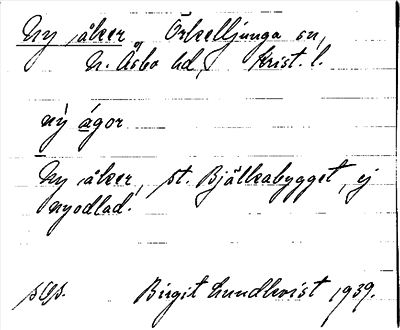 Ny åker Örkelljunga sn,
N. Åsbo hd, Krist. l.
ny̍ ågor
Ny åker, st. Bjälkabygget, ej
nyodlad.
Birgit Lundkvist 1939.